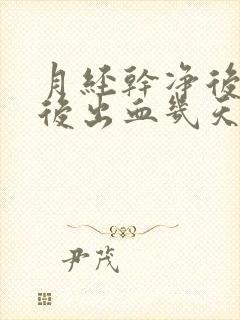 月経幹净後
後出血幾天
尹茂